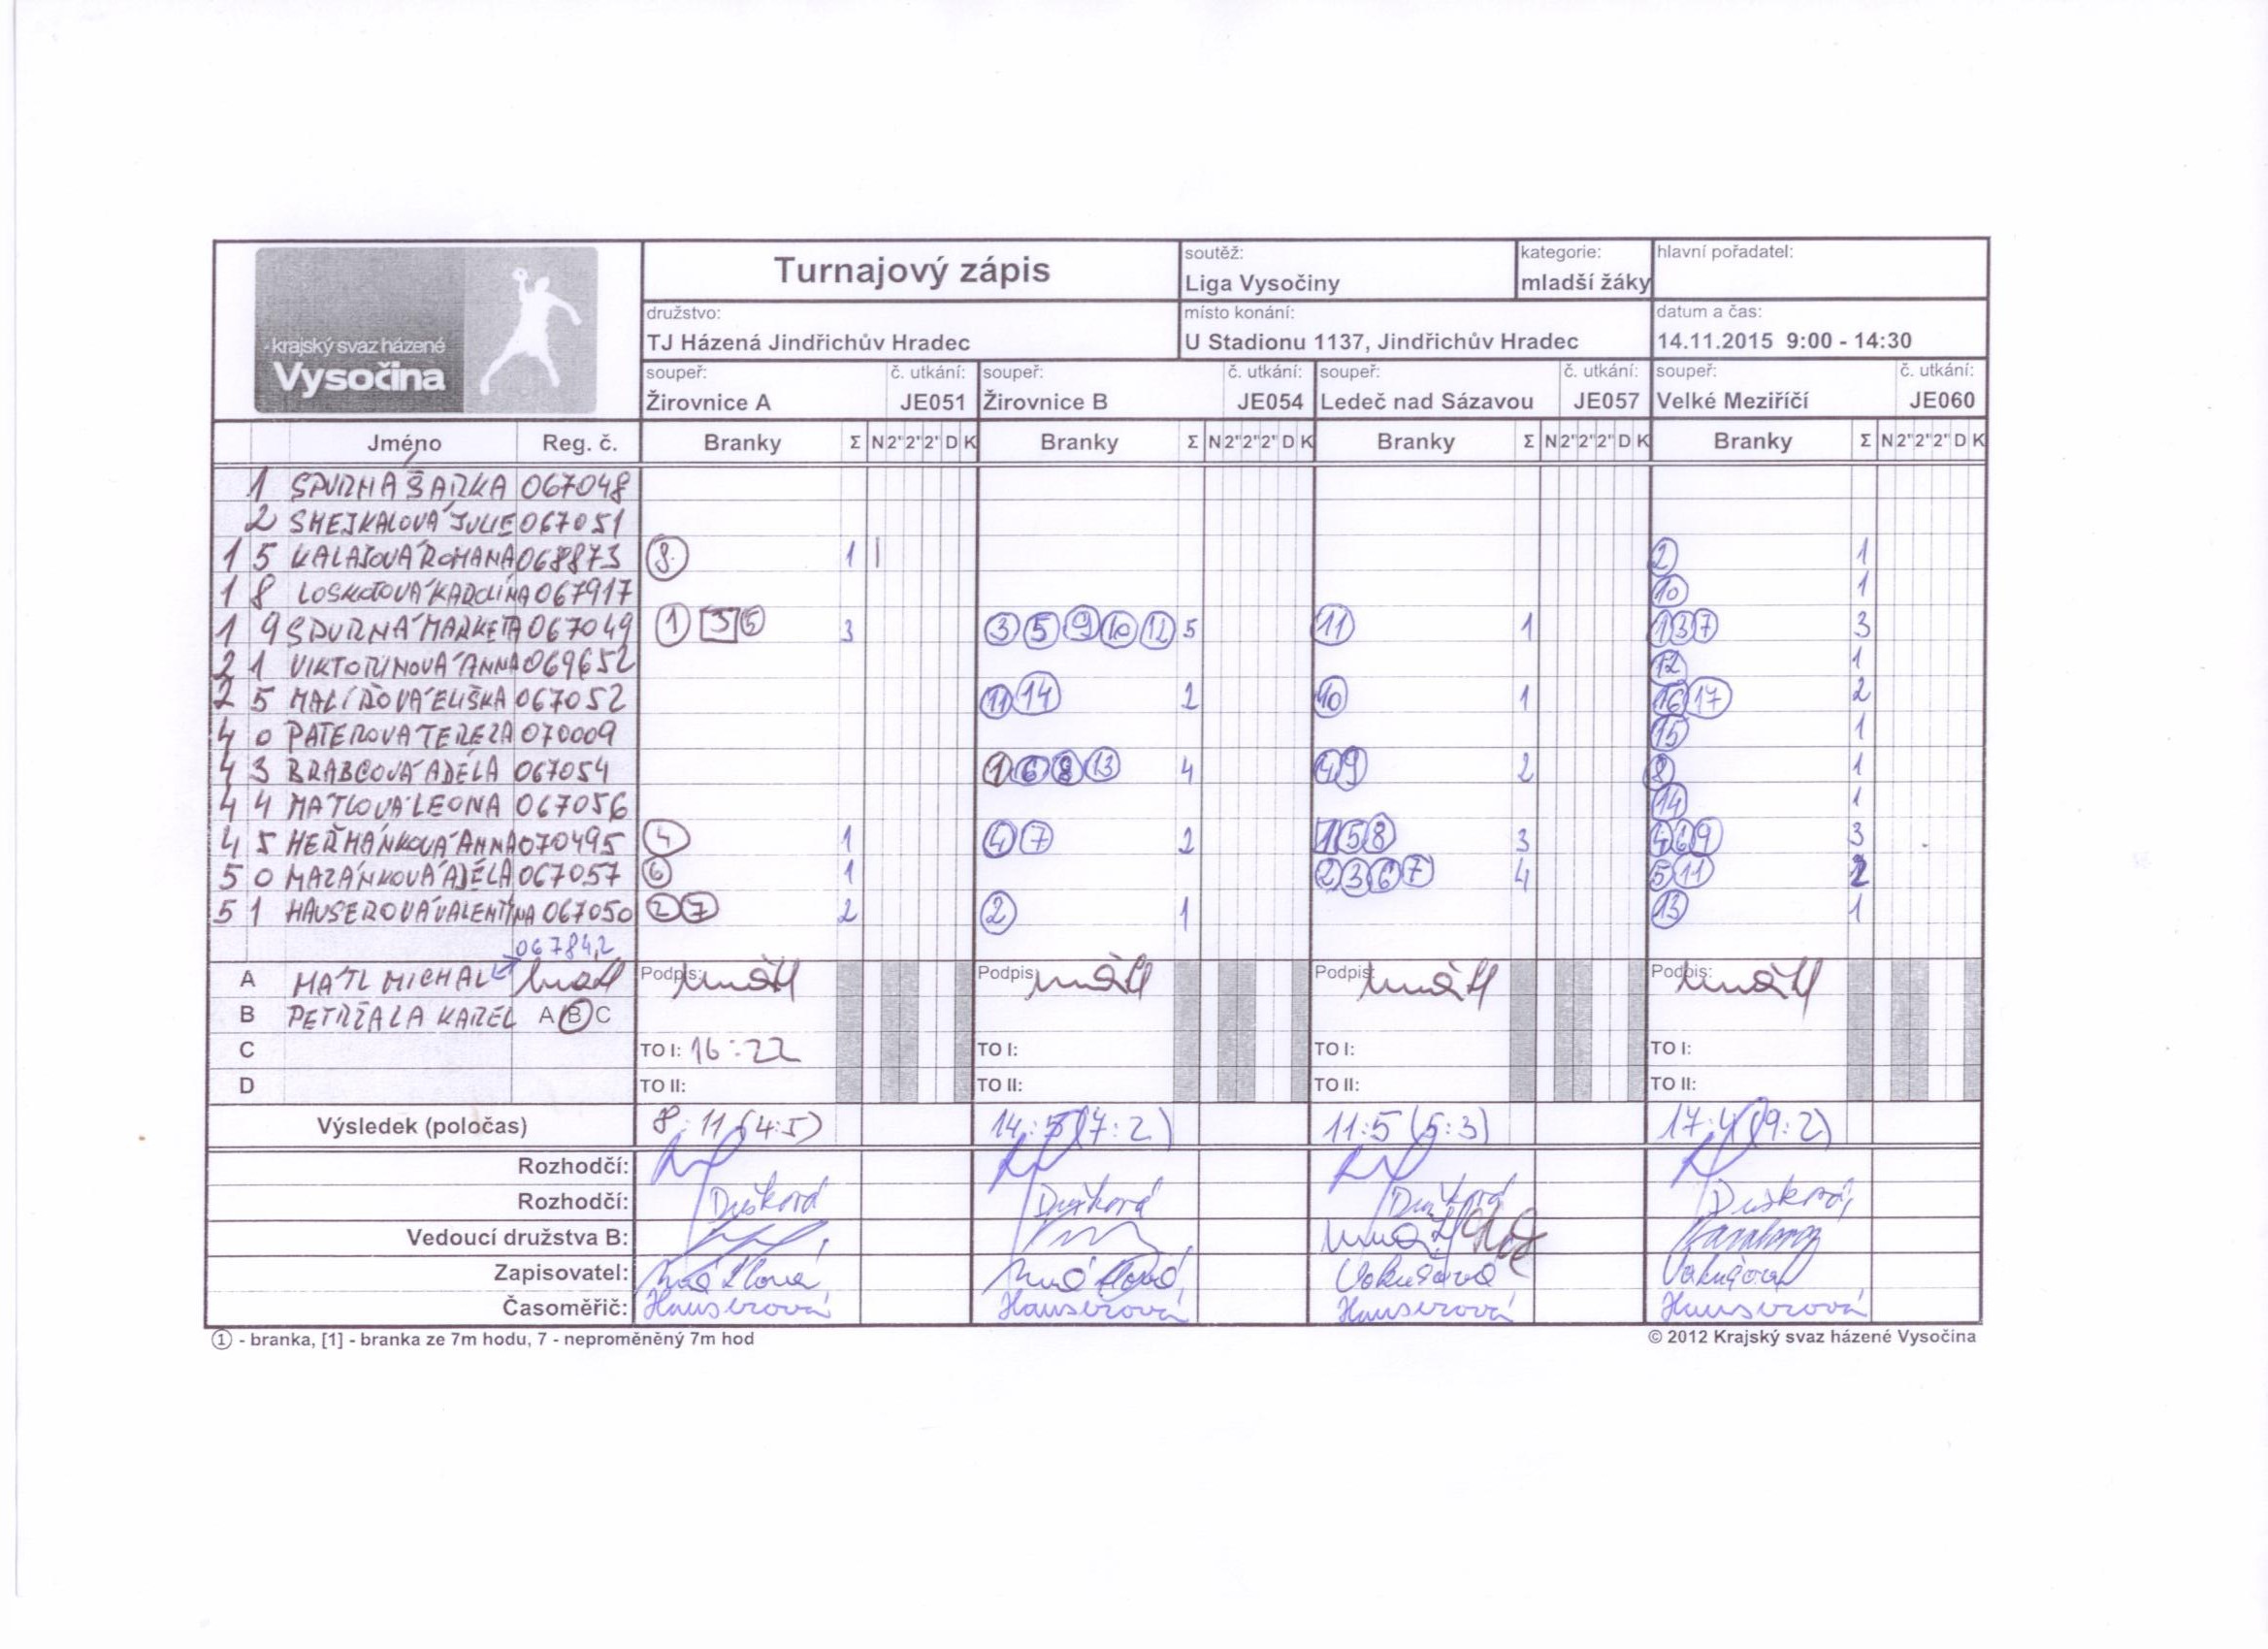 krajský svaz házené
Vysočina
Turnajový zápis
soutěž:
Liga Vysočiny
kategorie:
mladší žáky
hlavní pořadatel:
družstvo:
TJ Házená Jindřichův Hradec
místo konání:
U Stadionu 1137, Jindřichův Hradec
datum a čas:
14.11.2015 9:00 - 14:30
soupeř: č. utkání: soupeř: č. utkání: soupeř: č. utkání: soupeř: č. utkání:
Žirovnice A JE051 Žirovnice B JE054 Ledeč nad Sázavou JE057 Velké Meziříčí JE060
Jméno Reg. č. Branky Σ N 2" 2" 2" D K Branky Σ N 2" 2" 2" D K Branky Σ N 2" 2" 2" D K Branky Σ N 2" 2" 2" D K
1 SPURNÁ ŠÁRKA 067048
2 SMEJKALOVÁ JULIE 067051
15 KALATOVÁ ROMANA 068873 8 1 | 2 1
18 LOSKOTOVÁ KAROLÍNA 067917 10 1
19 SPURNÁ MARKÉTA 067049 1 3 5 3 3 5 9 10 12 5 11 1 1 3 7 3
21 VIKTORINOVÁ ANNA 069652 12 1
25 MALÍŘOVÁ ELIŠKA 067052 11 14 2 10 1 16 17 2
40 PATEROVA TEREZA 070009 15 1
43 BRABCOVÁ ADÉLA 067054 1 6 8 13 4 4 9 2 8 1
44 MÁTLOVÁ LEONA 067056 14 1
45 HEŘMÁNKOVÁ ANNA 070495 4 1 4 7 2 1 5 8 3 4 6 9 3
50 MAZÁNKOVÁ ADÉLA 067057 6 1 2 3 6 7 4 5 11 2
51 HAUSEROVÁ VALENTINA 067050 2 7 2 2 1 13 1
067842
A MÁTL MICHAL Mátl Podpis: Mátl Podpis: Mátl Podpis: Mátl Podpis: Mátl
B PETRŽALA KAREL A B C
C TO I: 16:22 TO I: TO I: TO I:
D TO II: TO II: TO II: TO II:
Výsledek (poločas) 8:11 (4:5) 14:5 (7:2) 11:5 (5:3) 17:4 (9:2)
Rozhodčí:
Rozhodčí: Dušková Dušková Dušková Dušková
Vedoucí družstva B:
Zapisovatel: Mátlová Mátlová Vokušová Vokušová
Časoměřič: Hauserová Hauserová Hauserová Hauserová
① - branka, [1] - branka ze 7m hodu, 7 - neproměněný 7m hod
© 2012 Krajský svaz házené Vysočina